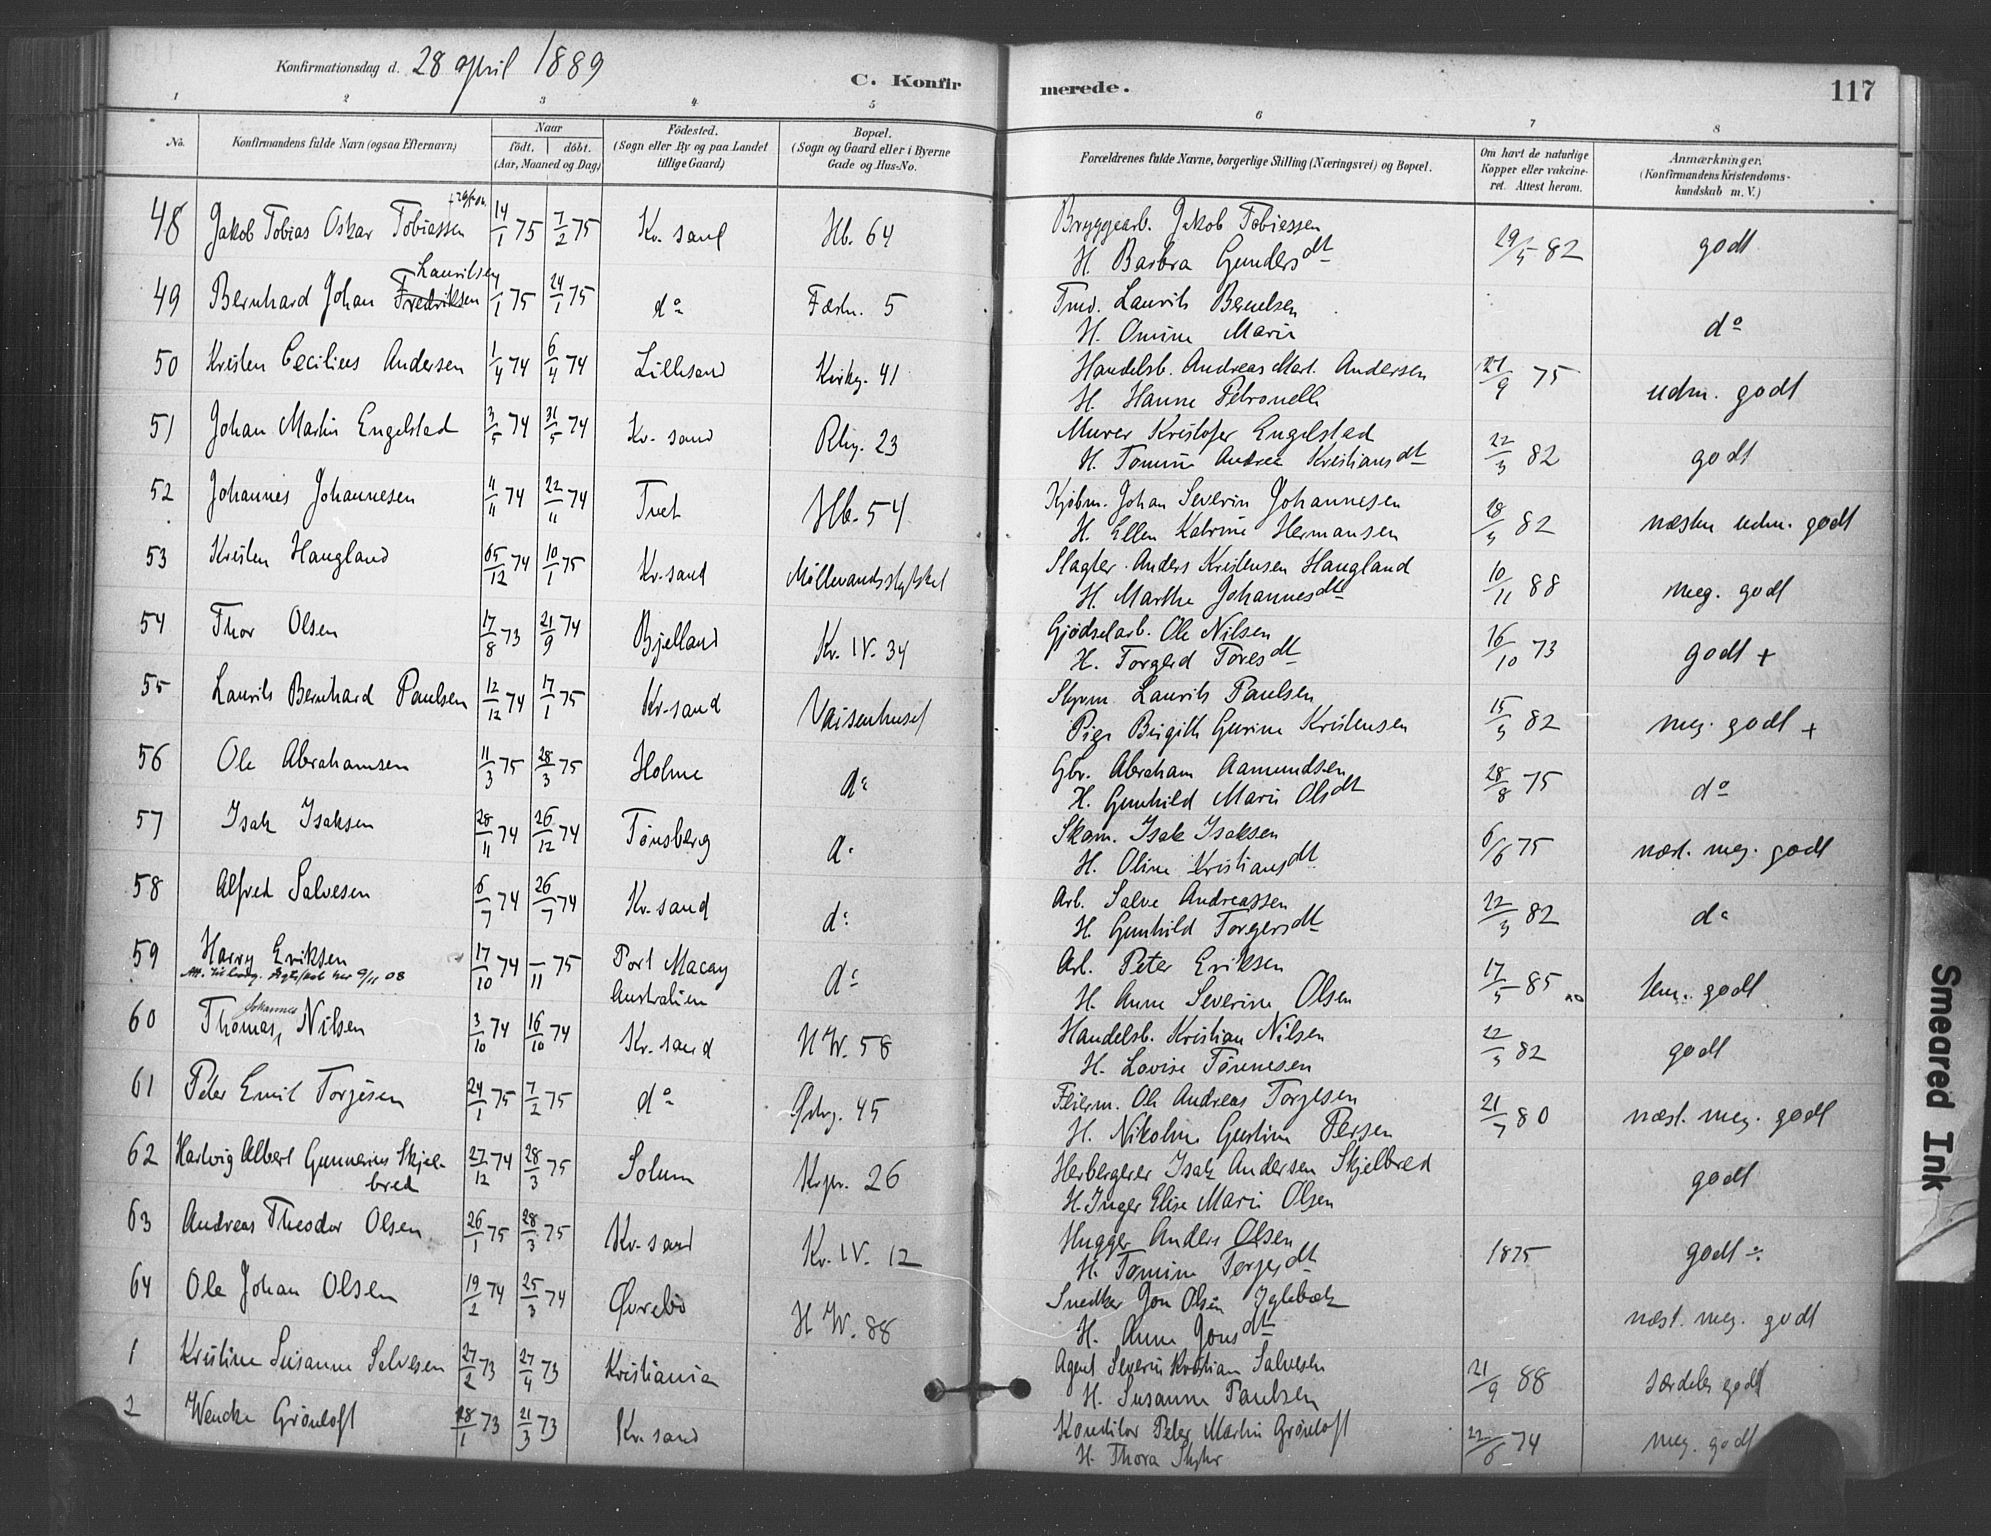 Konfirmationsdag d. 28 april 1889
C. Konfirmerede.
117
1 2 3 4 5 6 7 8
No.
Konfirmandens fulde Navn (ogsaa Efternavn)
Naar
födt. döbt.
(Aar, Maaned og Dag)
Födested.
(Sogn eller By og paa Landet
tillige Gaard)
Bopæl.
(Sogn og Gaard eller i Byerne
Gade og Hus-No.
Forældrenes fulde Navne, borgerlige Stilling (Næringsvei) og Bopæl.
Om havt de naturlige
Kopper eller vakcine-
ret. Attest herom.
Anmærkninger.
(Konfirmandens Kristendoms-
kundskab m. V.)
48 Jakob Tobias Oskar Tobiassen 14/1 75 7/2 75 Kr. sand Hb. 64 Bryggearb. Jakob Tobiassen 29/5 82 godt
H. Barbra Gundersdt
Lauritsen
49 Bernhard Johan Fredriksen 4/1 75 24/1 75 do Fæstn. 5 Laurits Berntsen do
H. Omine Marie
50 Kristen Cecilius Andersen 1/4 74 6/4 74 Lillesand Kirkg. 41 Handelsb. Andreas Mart. Andersen 27/9 75 udm. godt
H. Hanne Petronelle
51 Johan Martin Engelstad 3/5 74 31/5 74 Kr. sand Rbg. 23 Murer Kristofer Engelstad 22/3 82 godt
H. Tomine Andrea Kristiansdt
52 Johannes Johannesen 11/11 74 22/11 74 Tvet Hb. 54 Kjøbm. Johan Severin Johannesen 28/3 82 næsten udm. godt
H. Ellen Katrine Hermansen
53 Kristen Haugland /12 74 10/1 75 Kr. sand Möllevandsstykket Slagter Anders Kristensen Haugland 10/11 88 meg. godt
H. Marthe Johannesdt
54 Thor Olsen 17/8 73 21/9 74 Bjelland Kv. IV. 34 Gjödselarb. Ole Nilsen 16/10 73 godt +
H. Torgerd Toresdt
55 Laurits Bernhard Paulsen 12/12 74 17/1 75 Kr. sand Vaisenhuset Styrm. Laurits Paulsen 15/3 82 meg. godt +
Pige Birgitte Gurine Kristensen
56 Ole Abrahamsen 11/3 75 28/3 75 Holme do Gbr. Abraham Aamundsen 28/8 75 do
H. Gunhild Marie Olsdt
57 Isak Isaksen 28/11 74 26/12 74 Tönsberg do Skom. Isak Isaksen 6/6 75 næst. meg. godt
H. Oline Kristiansdt
58 Alfred Salvesen 6/7 74 26/7 74 Kr. sand do Arb. Salve Andreassen 22/3 82 do
H. Gunhild Torgersdt
59 Harry Eriksen 17/10 74 —/11 75 Port Macay do Arb. Peter Eriksen 17/5 85 tem. godt
9/11 08 Australien H. Anne Severine Olsen
Johannes
60 Thomas, Nilsen 3/10 74 16/10 74 Kr. sand H W. 58 Handelsb. Kristian Nilsen 22/3 82 godt
H. Lovise Tönnesen
61 Peter Emil Torjesen 24/1 75 7/2 75 do Østrg. 45 Feierm. Ole Andreas Torjesen 21/7 80 næst. meg. godt
H. Nikoline Gustine Persen
62 Hartvig Albert Gunnerius Skjel- 27/12 74 28/3 75 Solum Krpr. 26 Herbergerer Isak Andersen Skjelbred godt
bred H. Inger Elise Marie Olsen
63 Andreas Theodor Olsen 26/1 75 28/3 75 Kr. sand Kv. IV. 12 Hugger Anders Olsen 1875 godt ÷
H. Tomine Torjesdt
64 Ole Johan Olsen 19/2 74 25/3 74 Øvrebö H W. 88 Snedker Jon Olsen Iglebæk næst. meg. godt
H. Anne Jonsdt
1 Kristine Susanne Salvesen 27/2 73 27/4 73 Kristiania Agent Severin Kristian Salvesen 21/9 88 særdeles godt
H. Susanne Paulsen
2 Wencke Grönloft 28/1 73 21/3 73 Kr. sand Konditor Peter Martin Grönloft 22/6 74 meg. godt
H. Thora
Smeared Ink